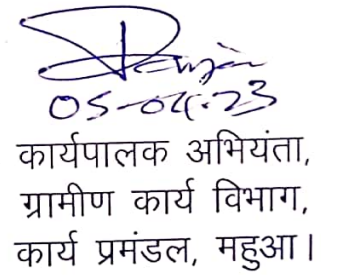 05-04-23
कार्यपालक अभियंता,
ग्रामीण कार्य विभाग,
कार्य प्रमंडल, महुआ।